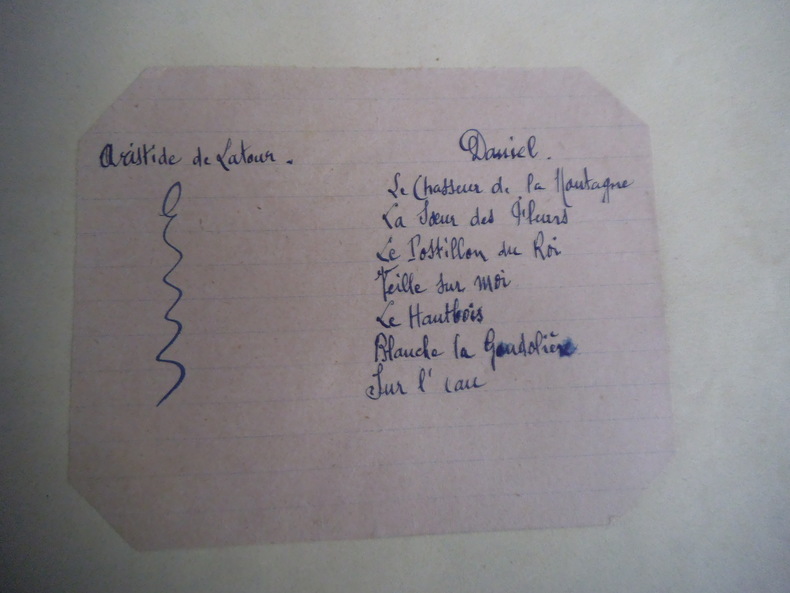 Aristide de Latour.
Daniel.
Le Chasseur de la Montagne
La Sœur des Fleurs
Le Postillon du Roi
Veille sur moi
Le Hautbois
Blanche la Gondolière
Sur l'eau